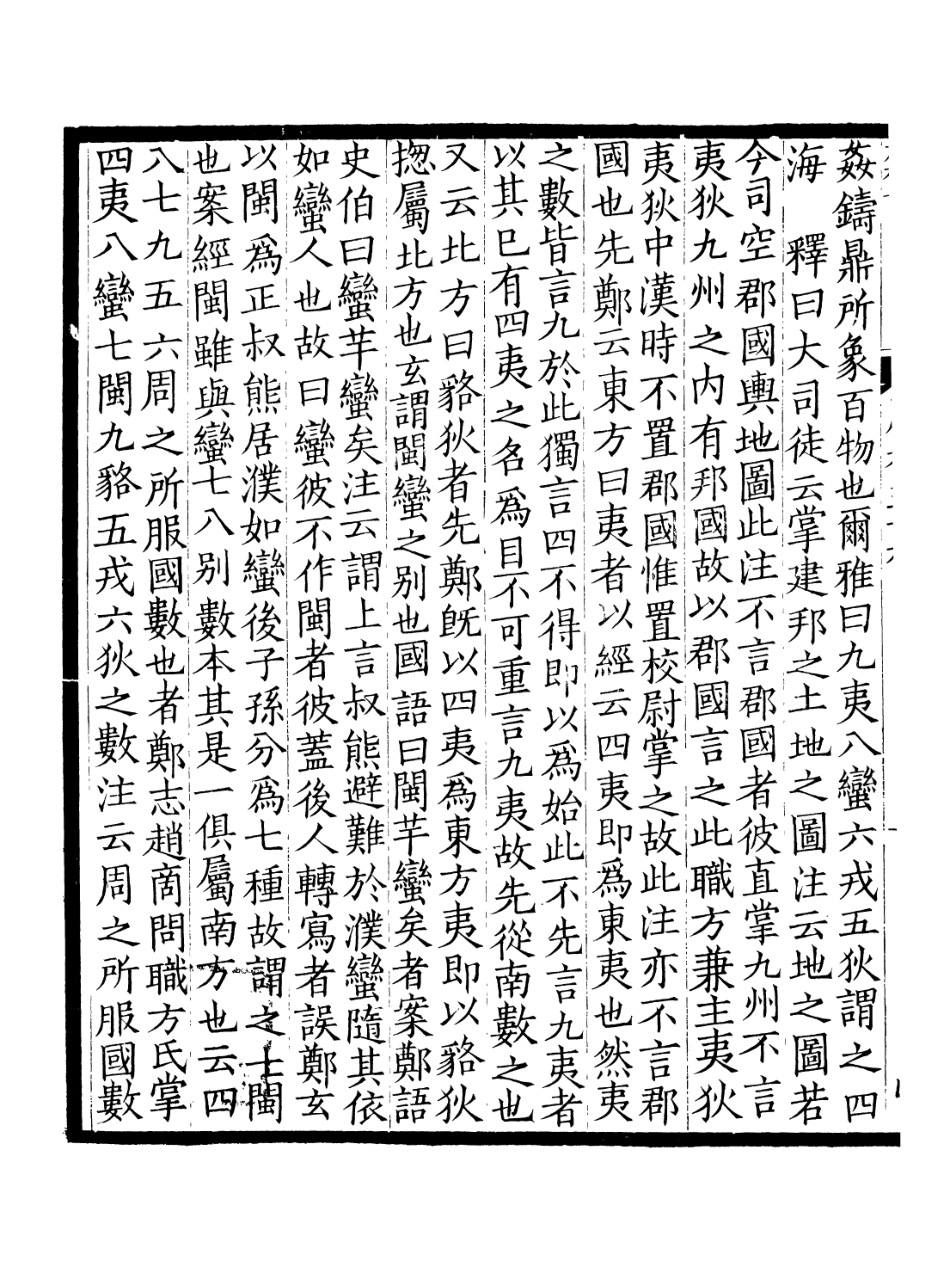 姦鑄鼎所象百物也爾雅曰九夷八蠻六戎五狄謂之四
海　釋曰大司徒云掌建邦之土地之圖注云地之圖若
今司空郡國輿地圖此注不言郡國者彼直掌九州不言
夷狄九州之內有邦國故以郡國言之此職方兼主夷狄
夷狄中漢時不置郡國惟置校尉掌之故此注亦不言郡
國也先鄭云東方曰夷者以經云四夷即爲東夷也然夷
之數皆言九於此獨言四不得即以爲始此不先言九夷者
以其已有四夷之名爲目不可重言九夷故先從南數之也
又云北方曰貉狄者先鄭旣以四夷爲東方夷即以貉狄
揔屬北方也玄謂閩蠻之别也國語曰閩芊蠻矣者案鄭語
史伯曰蠻芊蠻矣注云謂上言叔熊避難於濮蠻隨其依
如蠻人也故曰蠻彼不作閩者彼蓋後人轉寫者誤鄭玄
以閩爲正叔熊居濮如蠻後子孫分爲七種故謂之七閩
也案經閩雖與蠻七八别數本其是一俱屬南方也云四
八七九五六周之所服國數也者鄭志趙商問職方氏掌
四夷八蠻七閩九貉五戎六狄之數注云周之所服國數